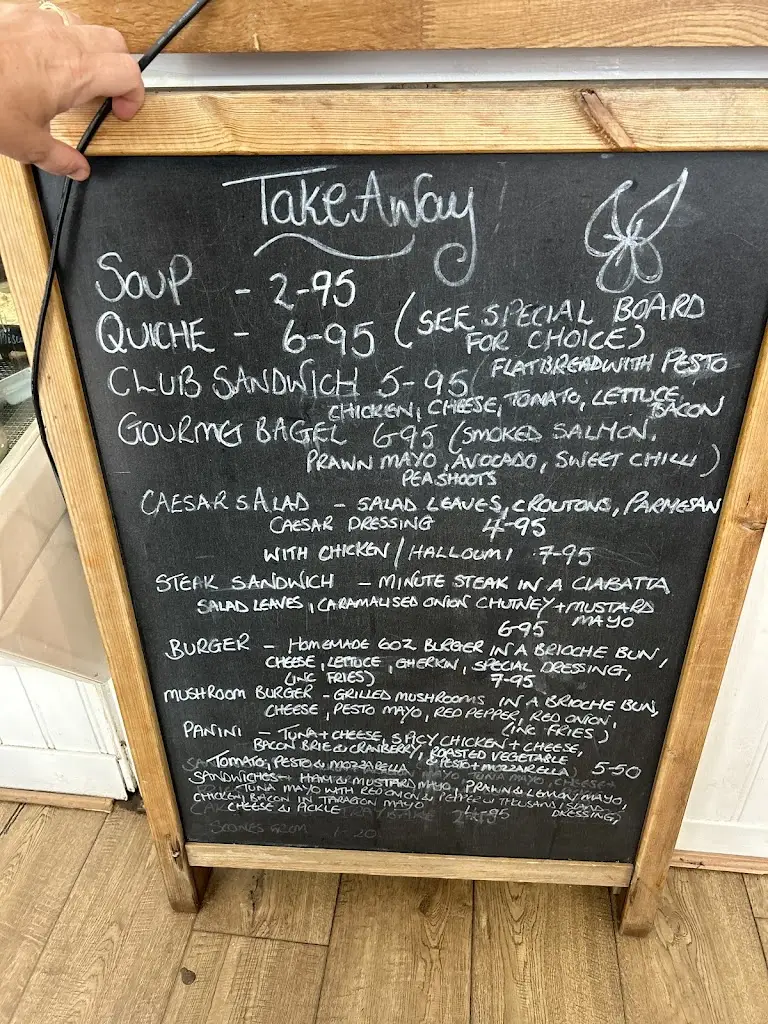 TakeAway
SOUP - 2-95
QUICHE - 6-95 (SEE SPECIAL BOARD
FOR CHOICE)
CLUB SANDWICH 5-95 (FLATBREAD WITH PESTO
CHICKEN, CHEESE, TOMATO, LETTUCE,
BACON
GOURMET BAGEL 6-95 (SMOKED SALMON,
PRAWN MAYO, AVOCADO, SWEET CHILLI)
PEASHOOTS
CAESAR SALAD - SALAD LEAVES, CROUTONS, PARMESAN
CAESAR DRESSING 4-95
WITH CHICKEN / HALLOUMI 7-95
STEAK SANDWICH - MINUTE STEAK IN A CIABATTA
SALAD LEAVES, CARAMALISED ONION CHUTNEY + MUSTARD
MAYO
6-95
BURGER - HOMEMADE 6OZ BURGER IN A BRIOCHE BUN,
CHEESE, LETTUCE, GHERKIN, SPECIAL DRESSING,
(INC FRIES) 7-95
MUSHROOM BURGER - GRILLED MUSHROOMS IN A BRIOCHE BUN,
CHEESE, PESTO MAYO, RED PEPPER, RED ONION,
(INC FRIES)
PANINI - TUNA + CHEESE, SPICY CHICKEN + CHEESE,
BACON BRIE & CRANBERRY, ROASTED VEGETABLE
TOMATO, PESTO & MOZZARELLA & PESTO + MOZZARELLA) 5-50
SANDWICHES - HAM & MUSTARD MAYO, PRAWN & LEMON MAYO,
TUNA MAYO WITH RED ONION & PEPPER & THOUSAND ISLAND
DRESSING,
CHICKEN BACON IN TARAGON MAYO
CHEESE & PICKLE